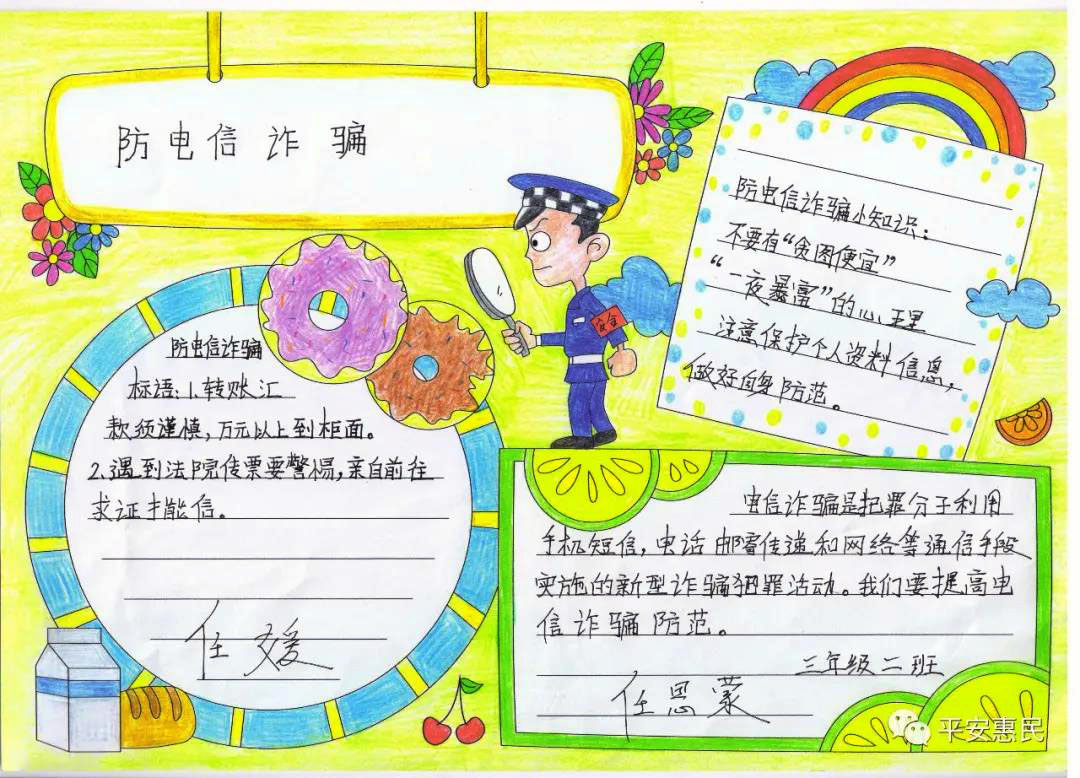 防电信诈骗
防电信诈骗小知识：
不要有“贪图便宜”
“一夜暴富”的心理
注意保护个人资料信息，
做好自身防范。
安全
防电信诈骗
标语：1.转账汇
款须谨慎，万元以上到柜面。
2.遇到法院传票要警惕，亲自前往
求证才能信。
任媛
电信诈骗是犯罪分子利用
手机短信，电话邮寄传递和网络等通信手段
实施的新型诈骗犯罪活动。我们要提高电
信诈骗防范。
三年级二班
任恩蒙
平安惠民